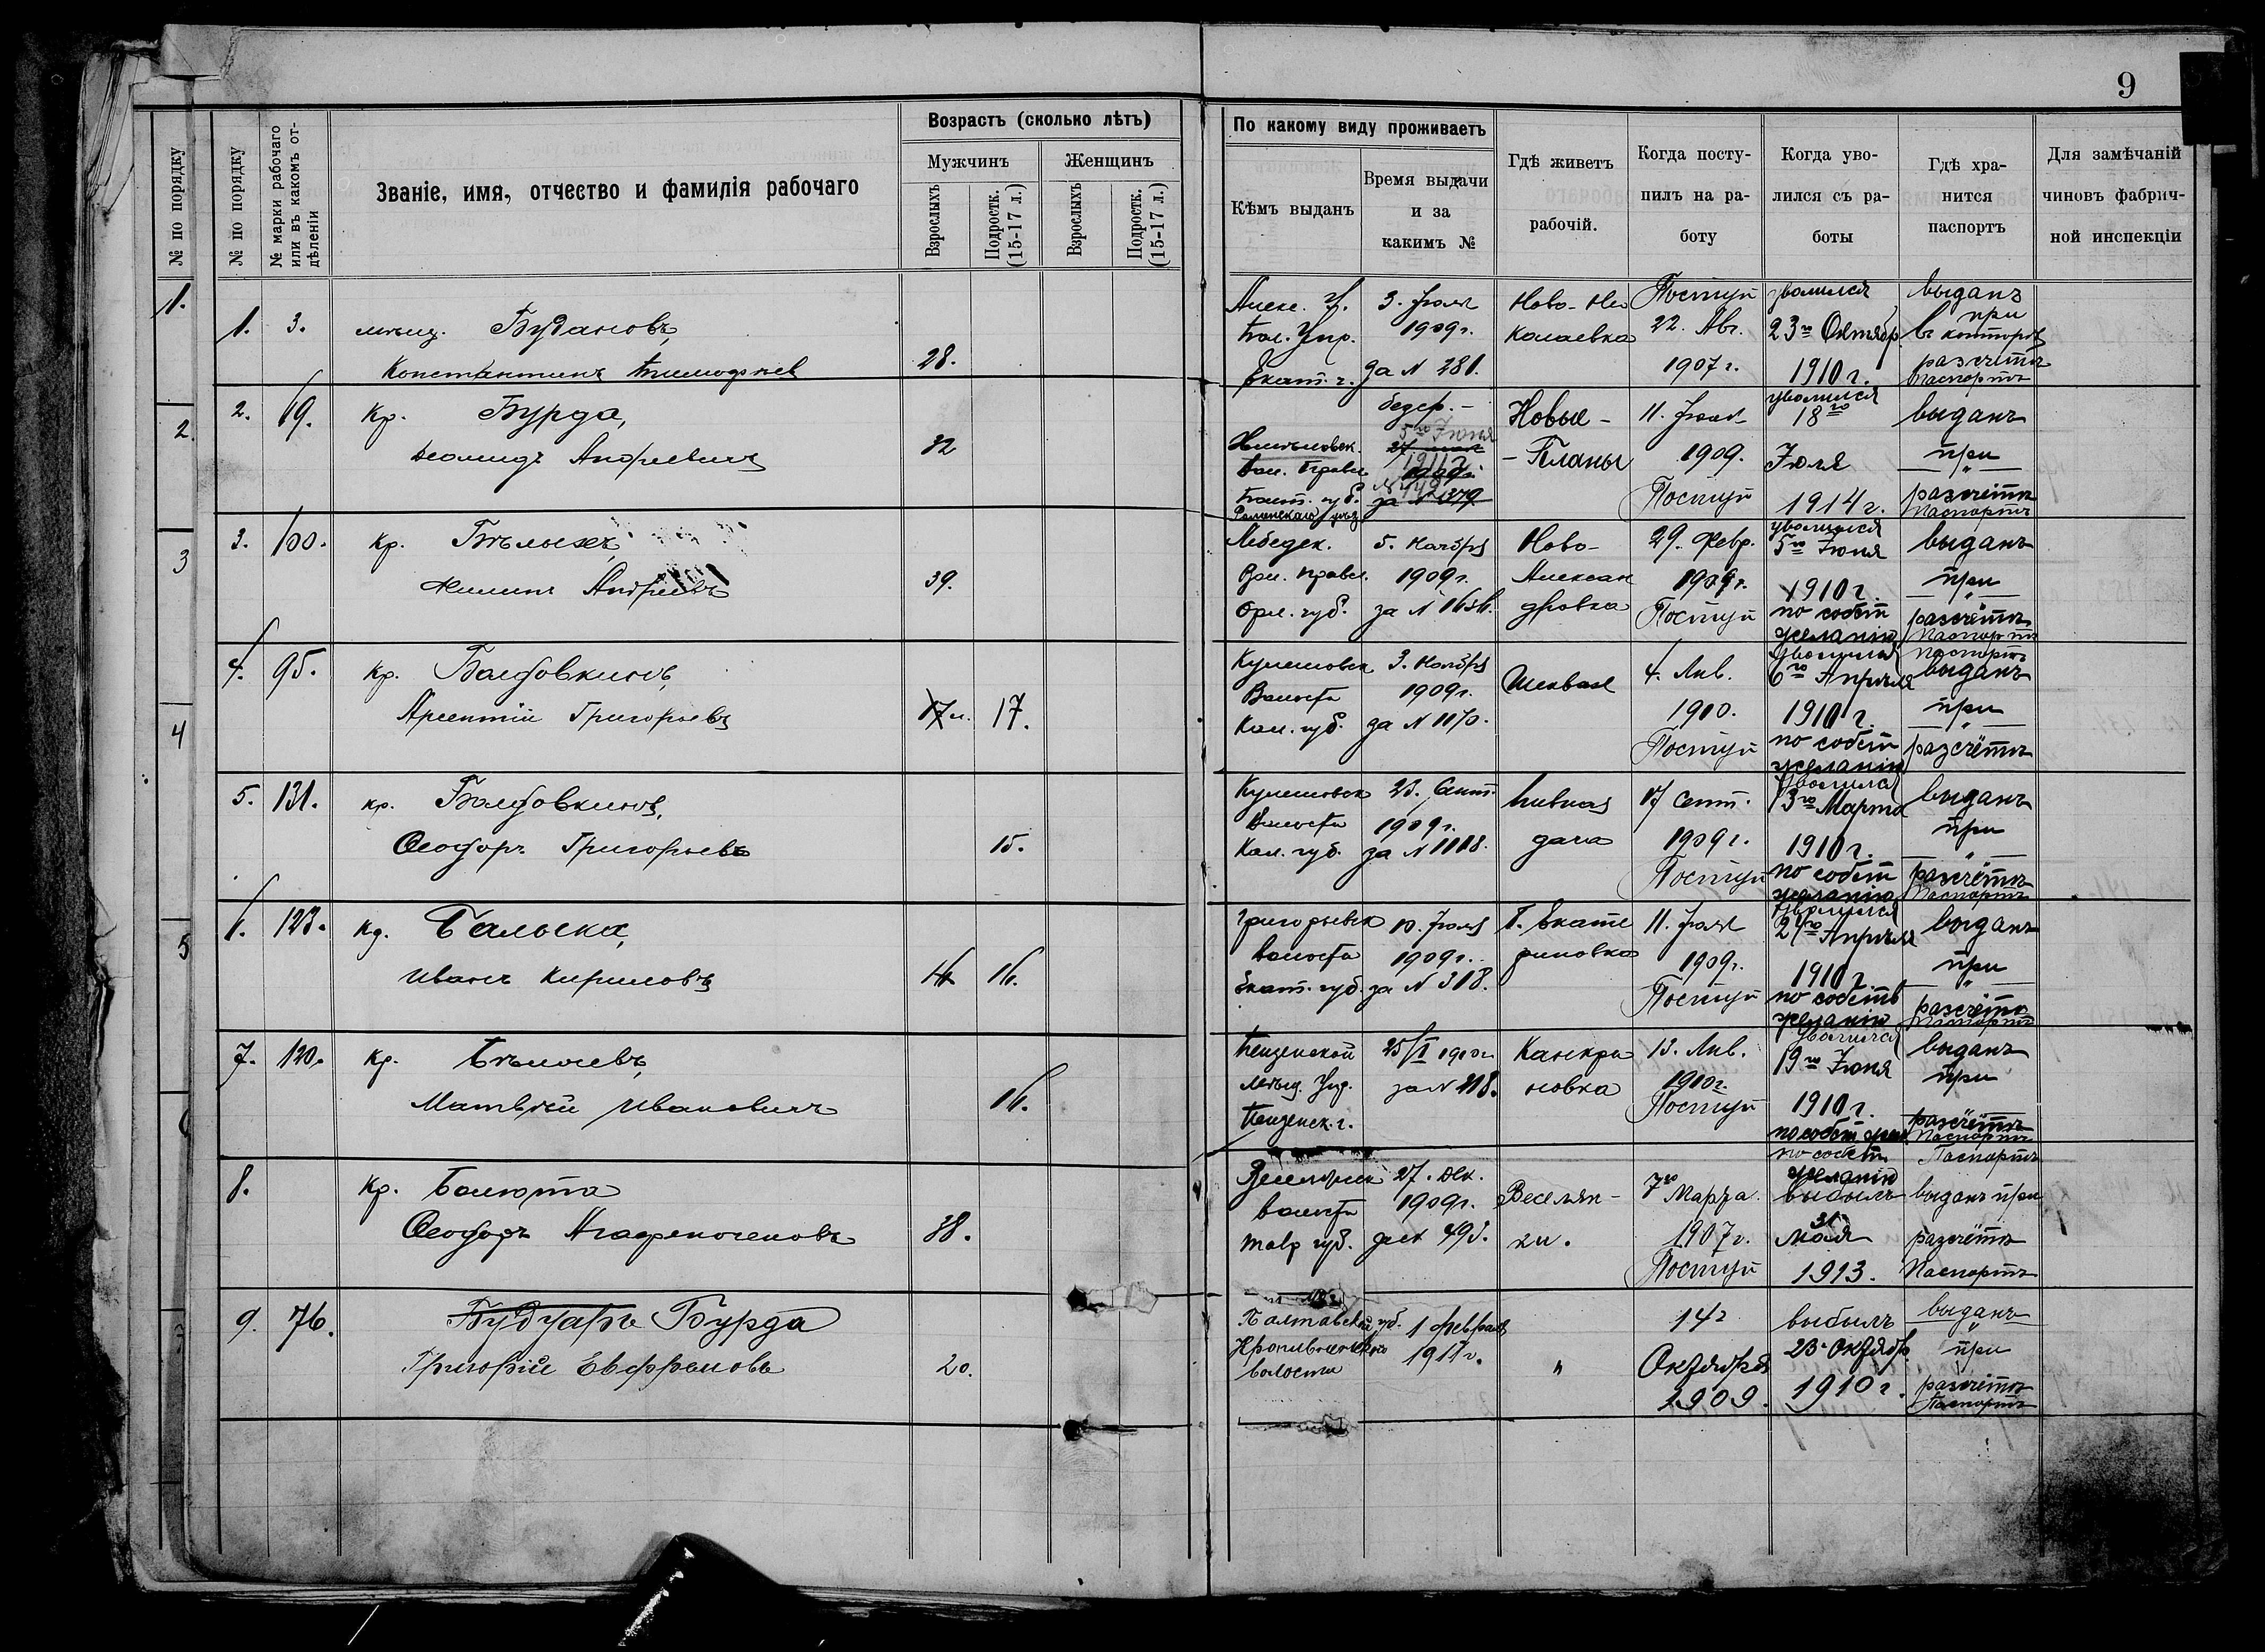 9
№ по порядку
№ по порядку
№ марки рабочаго или въ какомъ отдѣленіи
Званіе, имя, отчество и фамилія рабочаго
Возрастъ (сколько лѣтъ)
Мужчинъ
Женщинъ
Взрослыхъ
Подростк. (15-17 л.)
Взрослыхъ
Подростк. (15-17 л.)
По какому виду проживаетъ
Кѣмъ выданъ
Время выдачи и за какимъ №
Гдѣ живетъ рабочій.
Когда поступилъ на работу
Когда уволился съ работы
Гдѣ хранится паспортъ
Для замѣчаній чиновъ фабричной инспекціи
1.
2
3
4
5
1. 3. мѣщ. Будановъ,
Константинъ Тимофѣев 28.
3. Іюля
1909 г.
за № 281.
Ново-Ни
колаевка
Поступ
22. Авг.
1907 г.
уволился
23го Октябр.
1910 г.
выданъ
при
въ конторѣ
разсчётѣ
Паспортъ
2. 69. Кр. Бурда,
Діомидъ Андреевичъ 32
5го Іюня
1911 г.
за № 379
Новые -
- Планы
11. Іюля
1909.
Поступ
уволился
18го
Іюля
1914 г.
выданъ
при
разсчётѣ
Паспортъ
3. 100. Кр. Бѣлыхъ,
Андреевъ 39.
Лебедек.
Вол. Правл.
Орл. губ.
5. Ноября
1909 г.
Ново-
Алексан
дровка
29. Февр.
Поступ
уволился
5го Іюня
1910 г.
по собст
желанію
выданъ
при
разсчётѣ
Паспортъ
4. 95. Кр. Болдовкинъ,
Арсентій Григорьевъ 17 л. 17.
Кулешовск
Волости
Кал. губ.
3. Ноября
1909 г.
за № 1170.
4. Янв.
1910.
Поступ
Уволился
6го Апрѣля
1910 г.
по собст
желанію
Паспортъ
выданъ
при
разсчётѣ
5. 131. кр. Болдовкинъ,
Ѳеодоръ Григорьевъ 15.
Кулешовск
Волости
Кал. губ.
23. Сент.
1909 г.
за № 1118.
дача
17 Сент.
1909 г.
Поступ
Уволился
13го Марта
1910 г.
по собст
желанію
выданъ
при
разсчётѣ
Паспортъ
6. 123. Кр. Балыска,
Иванъ Кириловъ 16 16.
Григорьевск
Волости
Екат. губ.
10. Іюля
1909 г.
за № 318.
Г. Екате
риновка
11. Іюля
1909 г.
Поступ
Уволился
24го Апрѣля
1910 г.
по собств
желанію
выданъ
при
разсчётѣ
Паспортъ
7. 120. Кр.
Матвѣй Ивановичъ 16.
Пензенской
мѣщ. Упр.
Пензенск. г.
25/I 1910 г.
за № 118.
Канкри
новка
13. Янв.
1910 г.
Поступ
Уволился
19го Іюня
1910 г.
по собст жел
выданъ
при
разсчётѣ
Паспортъ
8. Кр. Балюта
Ѳеодоръ Агафеногеновъ 38.
волости
Тавр губ.
27. Дек.
1909 г.
за № 493.
Веселян-
ки.
7го Марта
1907 г.
Поступ
по собст
желанію
выбылъ
31
Мая
1913.
Паспортъ
выданъ при
разсчётѣ
Паспортъ
9. 76. Бурда
Григорій Евфремовъ 20.
Полтавской губ.
волости
1 февраля
1911 г.
"
14го
Октября
1909.
выбылъ
23 Октябр.
1910 г.
выданъ
при
разсчётѣ
Паспортъ